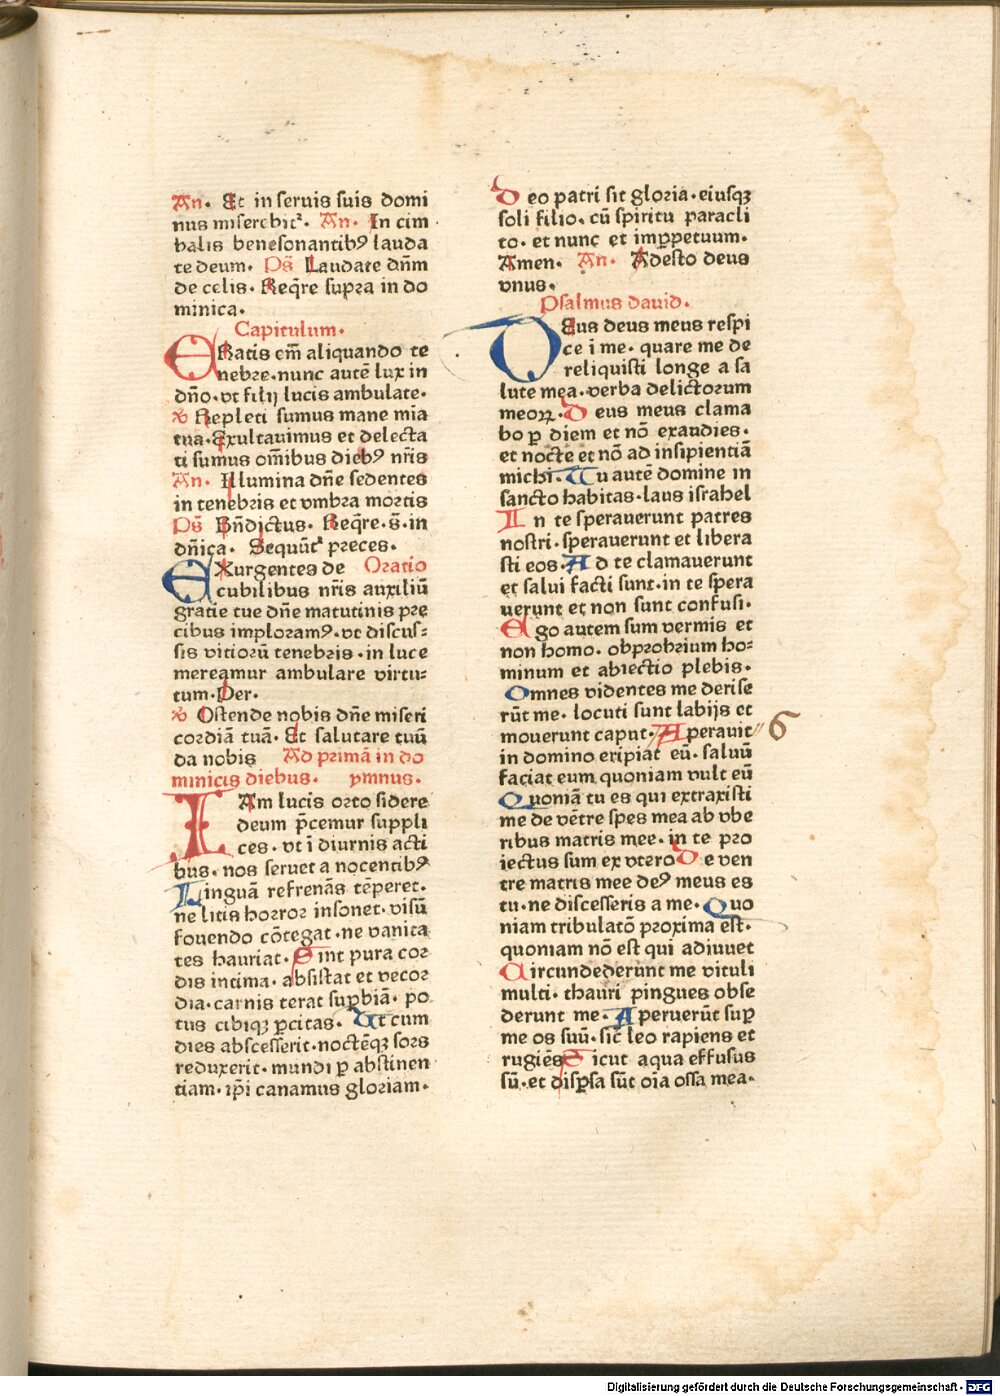 An. Et in seruis suis domi
nus miserebitᷣ. An. In cim
balis benesonantibꝰ lauda
te deum. Ps̄ Laudate dn̄m
de celis. Reqr̄e supra in do
minica.
Capitulum.
ERatis em̄ aliquando te
nebre. nunc autē lux in
dn̄o. vt filij lucis ambulate.
℟ Repleti sumus mane mia
tua. Exultauimus et delecta
ti sumus om̄ibus diebꝰ nr̄is
An. Illumina dn̄e sedentes
in tenebris et vmbra mortis
Ps̄ Bn̄dictus. Reqr̄e. s̄. in
dn̄ica. Sequūtᷣ preces.
EXurgentes de Oratio
cubilibus nr̄is auxiliū
gratie tue dn̄e matutinis pre
cibus imploramꝰ. vt discus⸗
sis vitiorū tenebris. in luce
mereamur ambulare virtu⸗
tum. Per.
℟ Ostende nobis dn̄e miseri
cordiā tuā. Et salutare tuū
da nobis Ad primā in do
minicis diebus. ymnus.
IAm lucis orto sidere
deum p̄cemur suppli
ces. vt ī diurnis acti
bus. nos seruet a nocentibꝰ
Linguā refrenās tēperet.
ne litis horror insonet. visū
fouendo cōtegat. ne vanita
tes hauriat. Sint pura cor
dis intima. absistat et vecor
dia. carnis terat suꝑbiā. po
tus cibiqꝫ ꝑcitas. Ut cum
dies abscesserit. noctēqꝫ sors
reduxerit. mundi ꝑ abstinen
tiam. ip̄i canamus gloriam.
Deo patri sit gloria. eiusqꝫ
soli filio. cū spiritu paracli
to. et nunc et imꝑpetuum.
Amen. An. Adesto deus
vnus.
Psalmus dauid.
DEus deus meus respi
ce ī me. quare me de
reliquisti longe a sa
lute mea. verba delictorum
meoꝝ. Deus meus clama
bo ꝑ diem et nō exaudies.
et nocte et nō ad insipientiā
michi. Tu autē domine in
sancto habitas. laus israhel
In te sperauerunt patres
nostri. sperauerunt et libera
sti eos. Ad te clamauerunt
et salui facti sunt. in te spera
uerunt et non sunt confusi.
Ego autem sum vermis et
non homo. obprobrium ho⸗
minum et abiectio plebis.
Omnes videntes me derise
rūt me. locuti sunt labijs et
mouerunt caput. Aperauit 6
in domino eripiat eū. saluū
faciat eum quoniam vult eū
Quoniā tu es qui extraxisti
me de vētre spes mea ab vbe
ribus matris mee. in te pro
iectus sum ex vtero De ven
tre matris mee deꝰ meus es
tu. ne discesseris a me. Quo
niam tribulatō proxima est.
quoniam nō est qui adiuuet
Circundederunt me vituli
multi. thauri pingues obse
derunt me. Aperuerūt suꝑ
me os suū. sic̄ leo rapiens et
rugiēs Sicut aqua effusus
sū. et disꝑsa sūt oīa ossa mea.
Digitalisierung gefördert durch die Deutsche Forschungsgemeinschaft - DFG